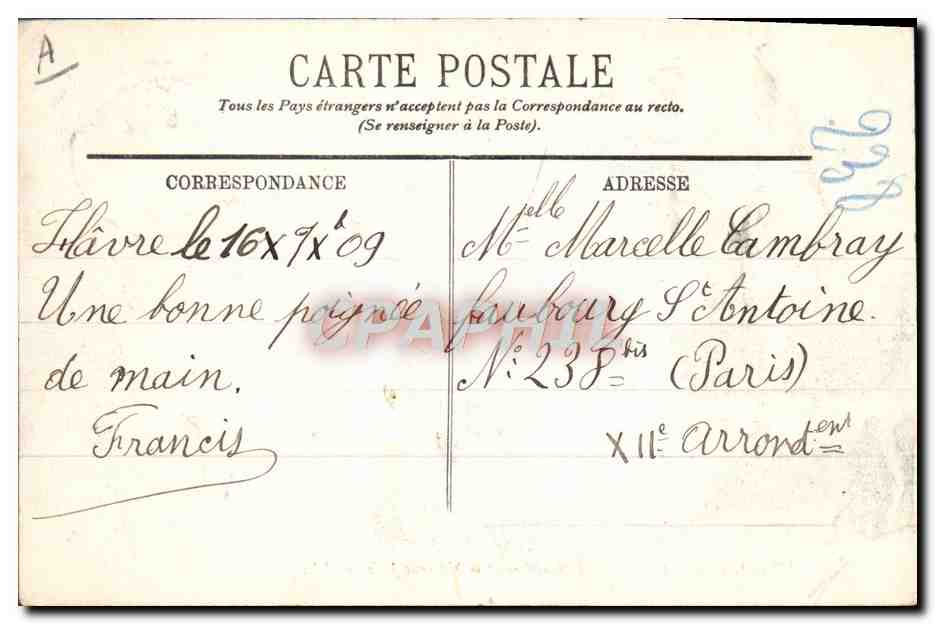 A
CARTE POSTALE
Tous les Pays étrangers n'acceptent pas la Correspondance au recto.
(Se renseigner à la Poste).
CORRESPONDANCE
Hâvre le 16 X 9bre 09
Une bonne poignée
de main.
Francis
ADRESSE
Melle Marcelle Cambray
faubourg St Antoine.
No: 238 bis (Paris)
XIIe Arrondent
CPAPHIL